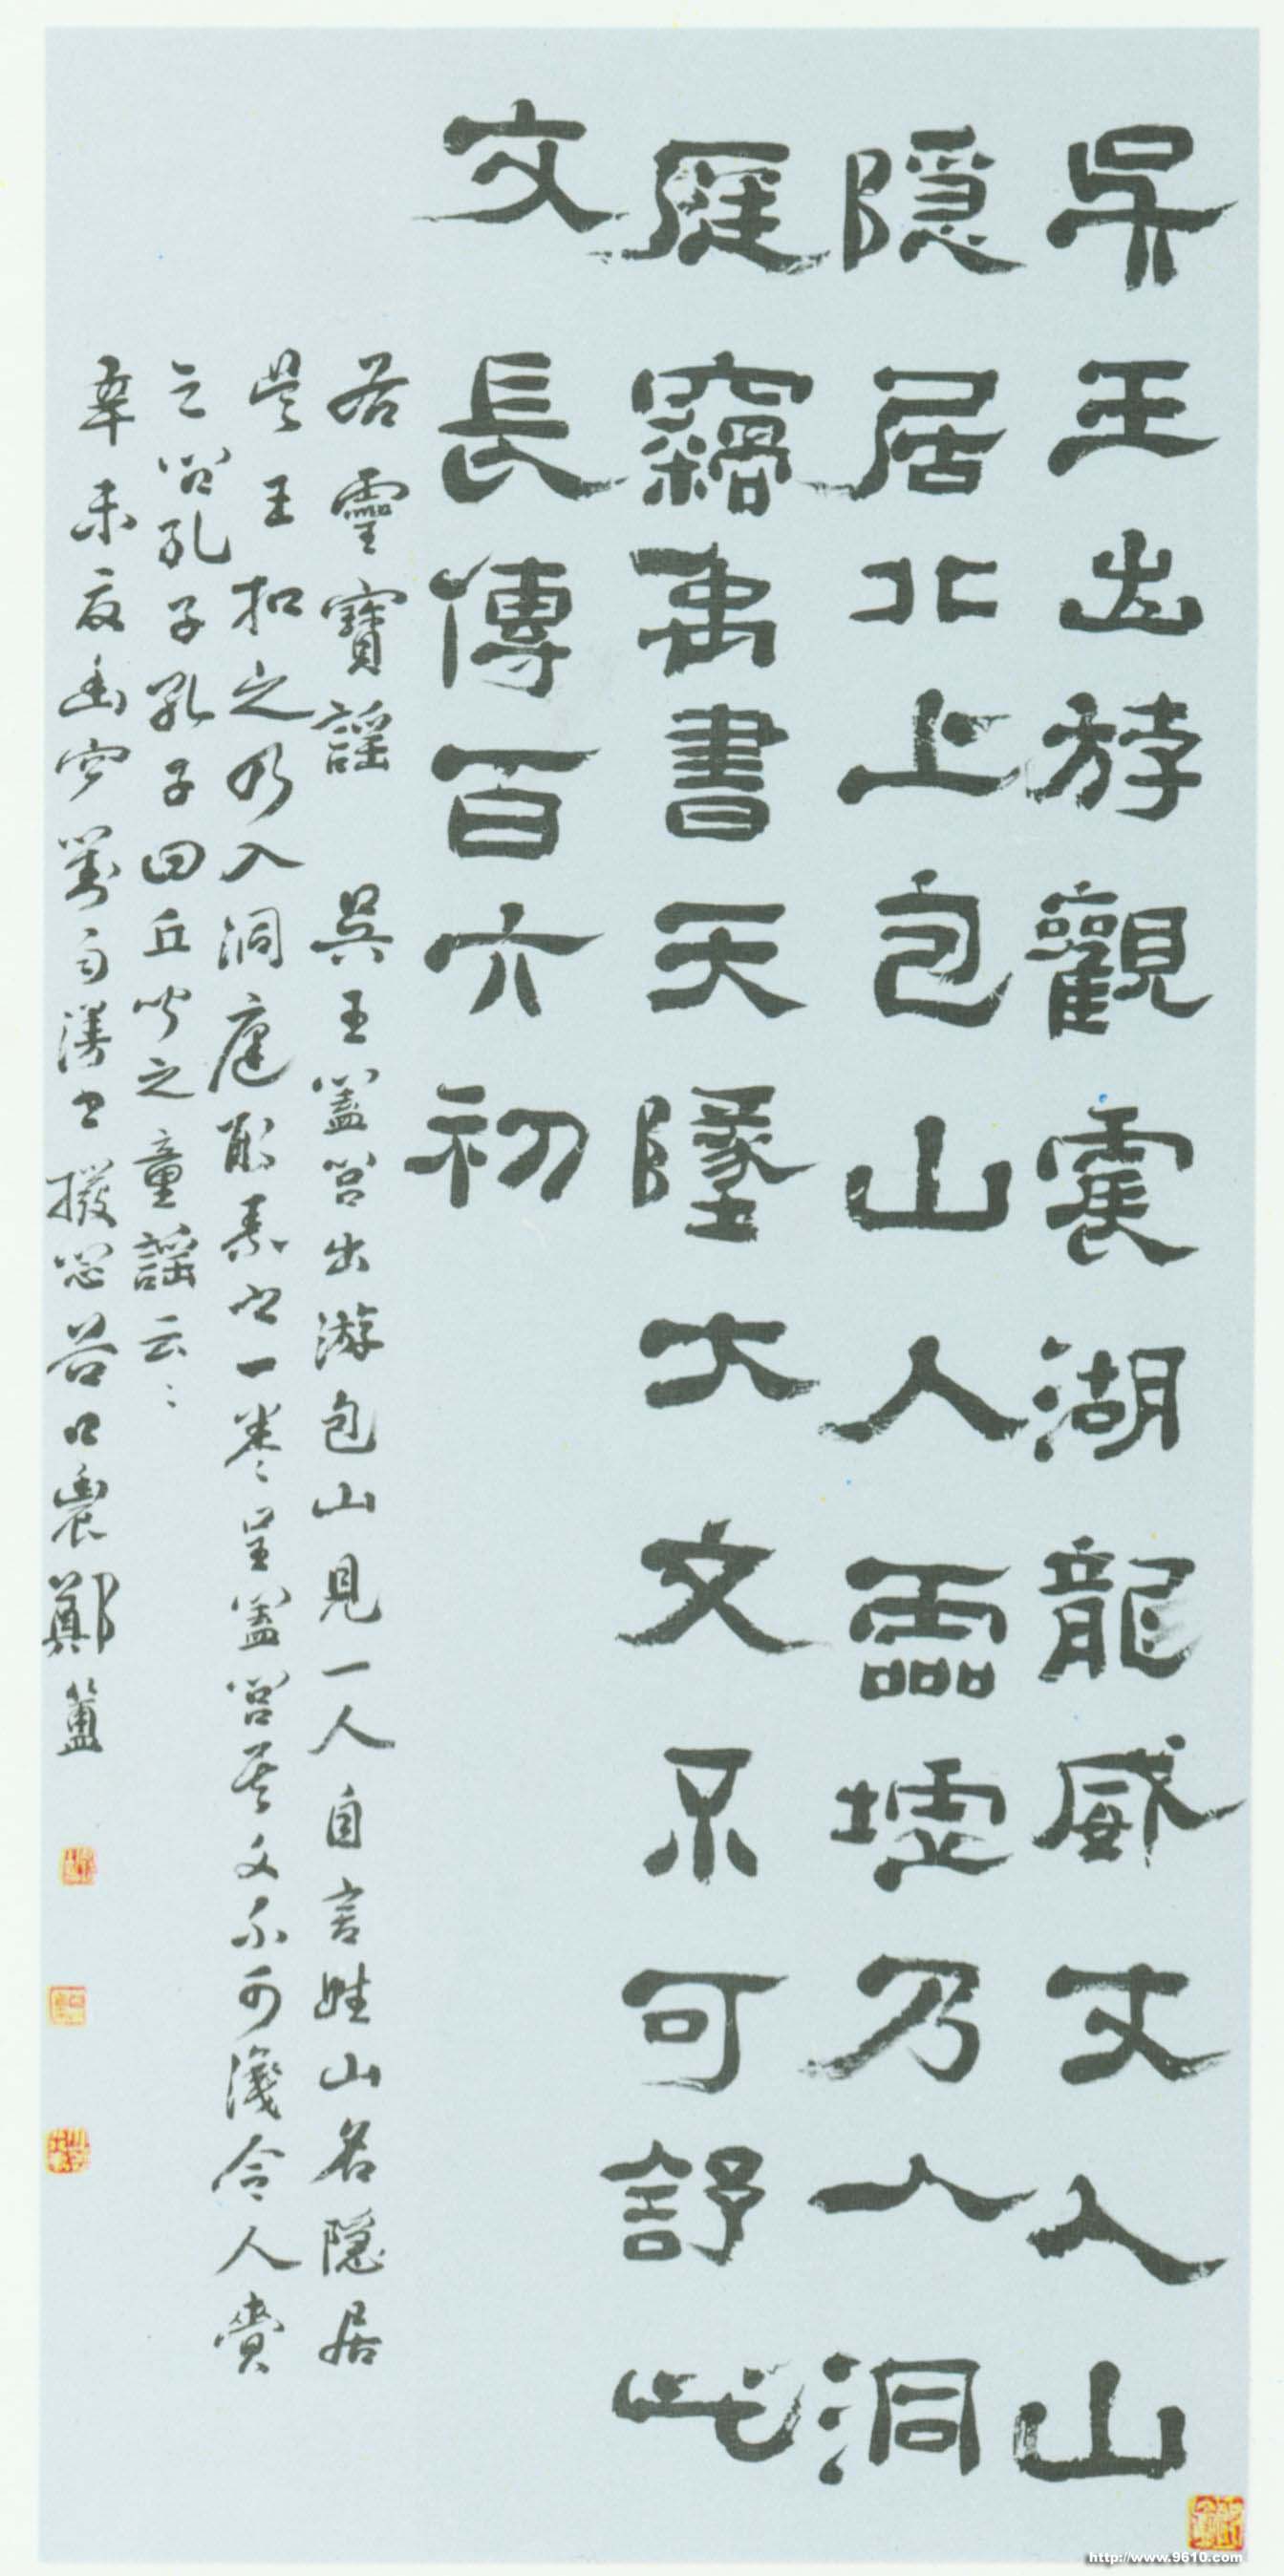 吳王出游觀震湖龍威丈人山
隱居北上包山入靈墟乃入洞
庭竊禹書天墬大文不可舒此
文長傳百六初
右靈寶謠 吳王蓋呂出游包山見一人自言姓山名隱居
吳王扣之乃入洞庭取素書一卷呈蓋呂其文不可識令人賷
之問孔子孔子曰丘聞之童謠云云
辛未夏幽窗對雨漫書 谷口農鄭簠
http://www.9610.com